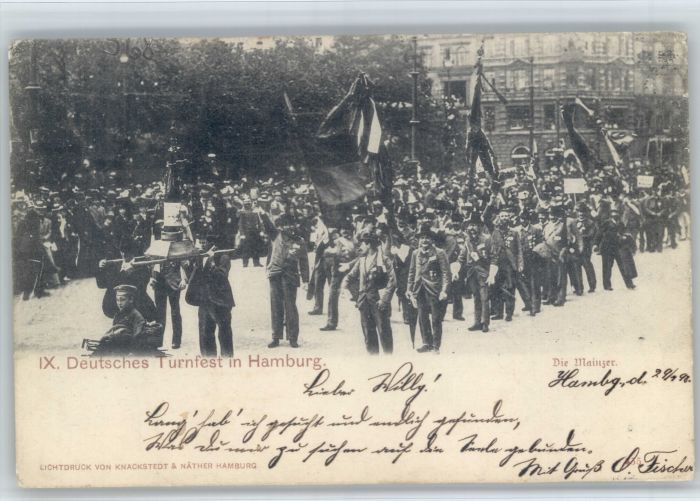 IX. Deutsches Turnfest in Hamburg.
Die Mainzer.
Hambg., d.
Lieber Willy!
Lang' hab' ich gesucht und endlich gefunden,
Was Du mir zu suchen auf die Seele gebunden.
Mit Gruß O. Fischer
LICHTDRUCK VON KNACKSTEDT & NÄTHER HAMBURG